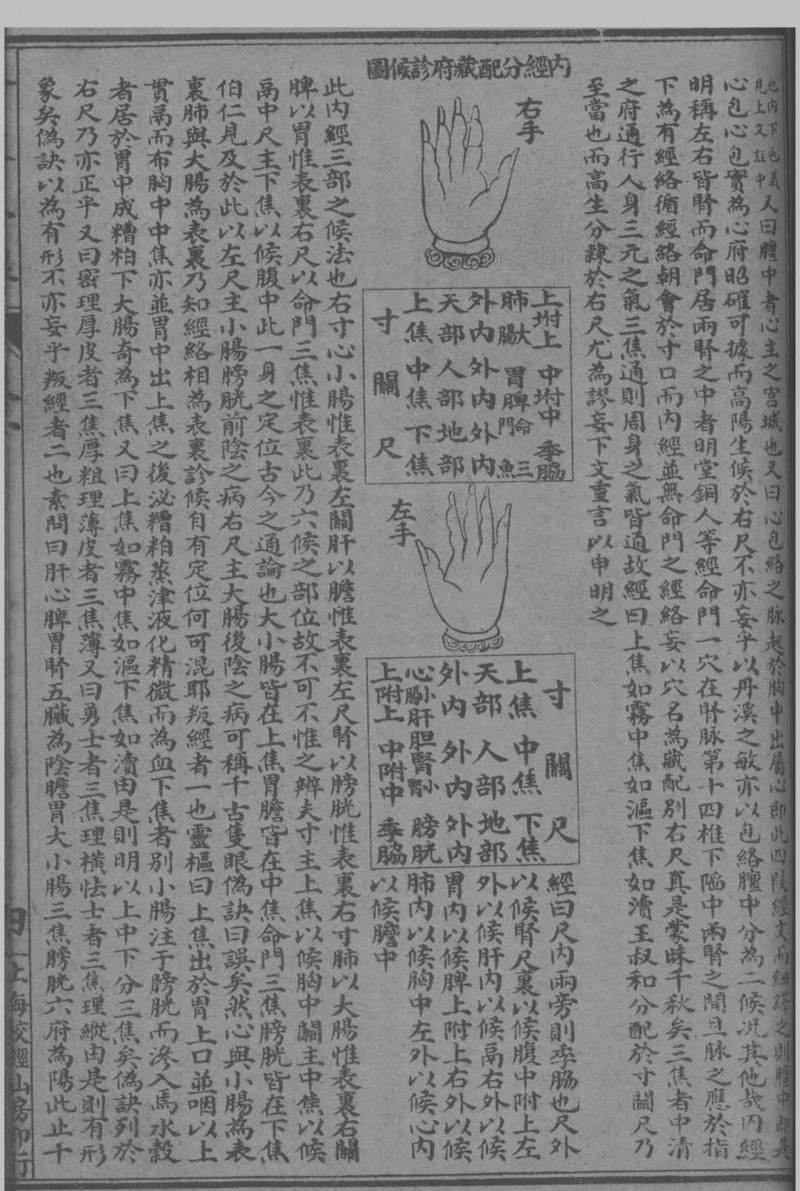 也內下也義
見上文註中
又曰膻中者心主之宮城也又曰心包絡之脉起於胸中出屬心即此四段經文而細繹之則膻中即是
心包心包實為心府昭確可據而高陽生候於右尺不亦妄乎以丹溪之敏亦以包絡膻中分為二候况其他哉內經
明稱左右皆腎而命門居兩腎之中者明堂銅人等經命門一穴在腎脉第十四椎下陷中兩腎之間且脉之應於指
下為有經絡循經絡朝會於寸口而內經並無命門之經絡妄以穴名為臟配別右尺真是蒙昧千秋矣三焦者中清
之府通行人身三元之氣三焦通則周身之氣皆通故經曰上焦如霧中焦如漚下焦如瀆王叔和分配於寸關尺乃
至當也而高生分隸於右尺尤為謬妄下文重言以申明之
內經分配藏府診候圖
右手
上坿上 中坿中 季脇
肺大腸 胃脾 命門 三魚
外內 外內 外內
天部 人部 地部
上焦 中焦 下焦
寸 關 尺
左手
寸 關 尺
上焦 中焦 下焦
天部 人部 地部
外內 外內 外內
心小腸 肝胆 腎小腸 膀胱
上附上 中附中 季脇
經曰尺內兩旁則季脇也尺外
以候腎尺裏以候腹中附上左
外以候肝內以候鬲右外以候
胃內以候脾上附上右外以候
肺內以候胸中左外以候心內
以候膻中
此內經三部之候法也右寸心小腸惟表裏左關肝以膽惟表裏左尺腎以膀胱惟表裏右寸肺以大腸惟表裏右關
脾以胃惟表裏右尺以命門三焦惟表裏此乃六候之部位故不可不惟之辨夫寸主上焦以候胸中關主中焦以候
鬲中尺主下焦以候腹中此一身之定位古今之通論也大小腸皆在上焦胃膽皆在中焦命門三焦膀胱皆在下焦
伯仁見及於此以左尺主小腸膀胱前陰之病右尺主大腸後陰之病可稱千古隻眼偽訣曰誤矣然心與小腸為表
裏肺與大腸為表裏乃知經絡相為表裏診候自有定位何可混耶叛經者一也靈樞曰上焦出於胃上口並咽以上
貫鬲而布胸中中焦亦並胃中出上焦之後泌糟粕蒸津液化精微而為血下焦者別小腸注于膀胱而滲入焉水穀
者居於胃中成糟粕下大腸奇為下焦又曰上焦如霧中焦如漚下焦如瀆由是則明以上中下分三焦矣偽訣列於
右尺乃亦正乎又曰密理厚皮者三焦厚粗理薄皮者三焦薄又曰勇士者三焦理橫怯士者三焦理縱由是則有形
象矣偽訣以為有形不亦妄乎叛經者二也素問曰肝心脾胃腎五臟為陰膽胃大小腸三焦膀胱六府為陽此止十
上海校經山房印行